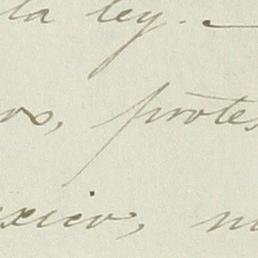 la ley.
os, protes
exico, m